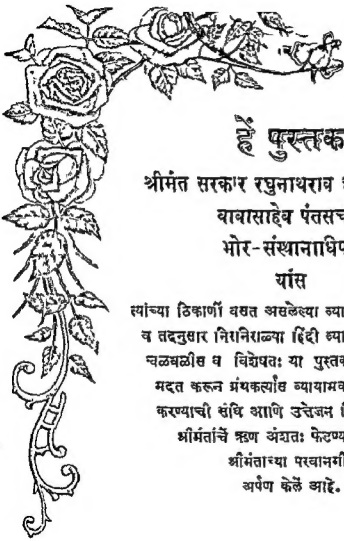 हें पुस्तक
श्रीमंत सरकार रघुनाथराव
बाबासाहेब पंतसच
भोर-संस्थानाधिप
यांस
त्यांच्या ठिकाणीं वसत असलेल्या व्या
व तदनुसार निरनिराळ्या हिंदी व्या
चळवळीस व विशेषतः या पुस्तक
मदत करून ग्रंथकर्त्यास व्यायाम
करण्याची संधि आणि उत्तेजन
श्रीमंतांचें ऋण अंशतः फेडण्या
श्रीमंताच्या परवानगी
अर्पण केलें आहे.